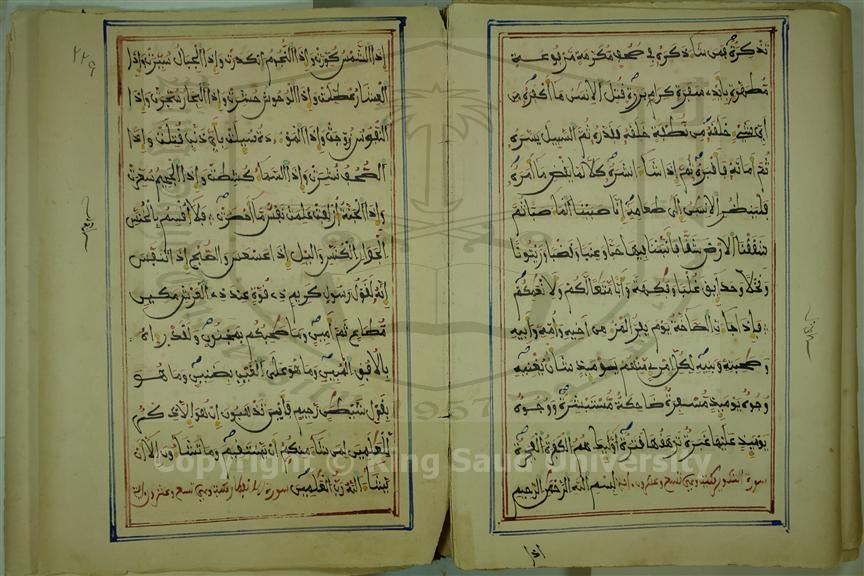 تذكرة فمن شاء ذكره في صحف مكرمة مرفوعة
مطهرة بأيدي سفرة كرام بررة قتل الانسن ما أكفره من
أي شيء خلقه من نطفة خلقه فقدره ثم السبيل يسره
ثم أماته فأقبره ثم إذا شاء انشره كلا لما يقض ما أمره
فلينظر الانسن إلى طعامه إنا صببنا الما صبا ثم
شققنا الارض شقا فأنبتنا فيها حبا وعنبا وقضبا وزيتونا
ونخلا وحدايق غلبا وفكهة وأبا متعا لكم ولأنعمكم
فإذا جاءت الصاخة يوم يفر المرء من أخيه وأمه وأبيه
وصحبته وبنيه لكل امرئ منهم يوميذ شأن يغنيه
وجوه يوميذ مسفرة ضاحكة مستبشرة ووجوه
يوميذ عليها غبرة ترهقها قترة أوليك هم الكفرة الفجرة
سورة التكوير مكية وهي تسع وعشرون ءاية بسم الله الرحمن الرحيم
إذا
٢٢٩
إذا الشمس كورت وإذا النجوم انكدرت وإذا الجبال سيرت وإذا
العشار عطلت وإذا الوحوش حشرت وإذا البحار سجرت وإذا
النفوس زوجت وإذا الموءدة سيلت بأي ذنب قتلت وإذا
الصحف نشرت وإذا السماء كشطت وإذا الجحيم سعرت
وإذا الجنة أزلفت علمت نفس ما أحضرت فلا أقسم بالخنس
الجوار الكنس واليل إذا عسعس والصبح إذا تنفس
إنه لقول رسول كريم ذي قوة عند ذي العرش مكين
مطاع ثم أمين وما صحبكم بمجنون ولقد رءاه
بالأفق المبين وما هو على الغيب بضنين وما هو
بقول شيطن رجيم فأين تذهبون إن هو إلا ذكر
للعلمين لمن شاء منكم أن يستقيم وما تشاءون إلا أن
يشاء الله رب العلمين سورة الانفطار مكية وهي تسع وعشرة ءاية
Copyright © King Saud University
1957